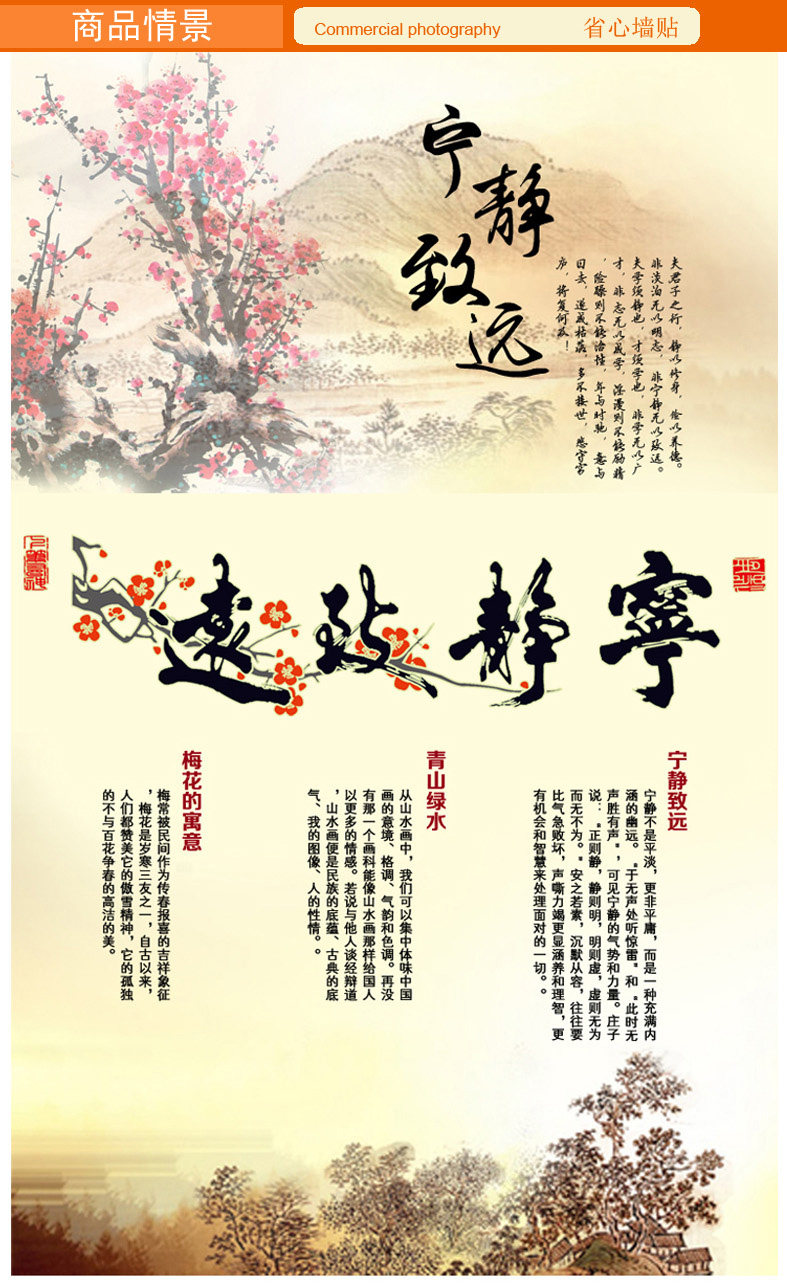 商品情景
Commercial photography
省心墙贴
宁静致远
夫君子之行，静以修身，俭以养德。
非淡泊无以明志，非宁静无以致远。
夫学须静也，才须学也，非学无以广
才，非志无以成学，淫漫则不能励精
，险躁则不能治性，年与时驰，意与
日去，遂成枯落，多不接世，悲守穷
庐，将复何及！
寧静致遠
宁静致远
宁静不是平淡，更非平庸，而是一种充满内
涵的幽远。“于无声处听惊雷”和“此时无
声胜有声”，可见宁静的气势和力量。庄子
说：“正则静，静则明，明则虚，虚则无为
而无不为。”安之若素，沉默从容，往往要
比气急败坏，声嘶力竭更显涵养和理智，更
有机会和智慧来处理面对的一切。。
青山绿水
从山水画中，我们可以集中体味中国
画的意境、格调、气韵和色调。再没
有那一个画科能像山水画那样给国人
以更多的情感。若说与他人谈经辩道
，山水画便是民族的底蕴、古典的底
气、我的图像、人的性情。。
梅花的寓意
梅常被民间作为传春报喜的吉祥象征
，梅花是岁寒三友之一，自古以来，
人们都赞美它的傲雪精神，它的孤独
的不与百花争春的高洁的美。